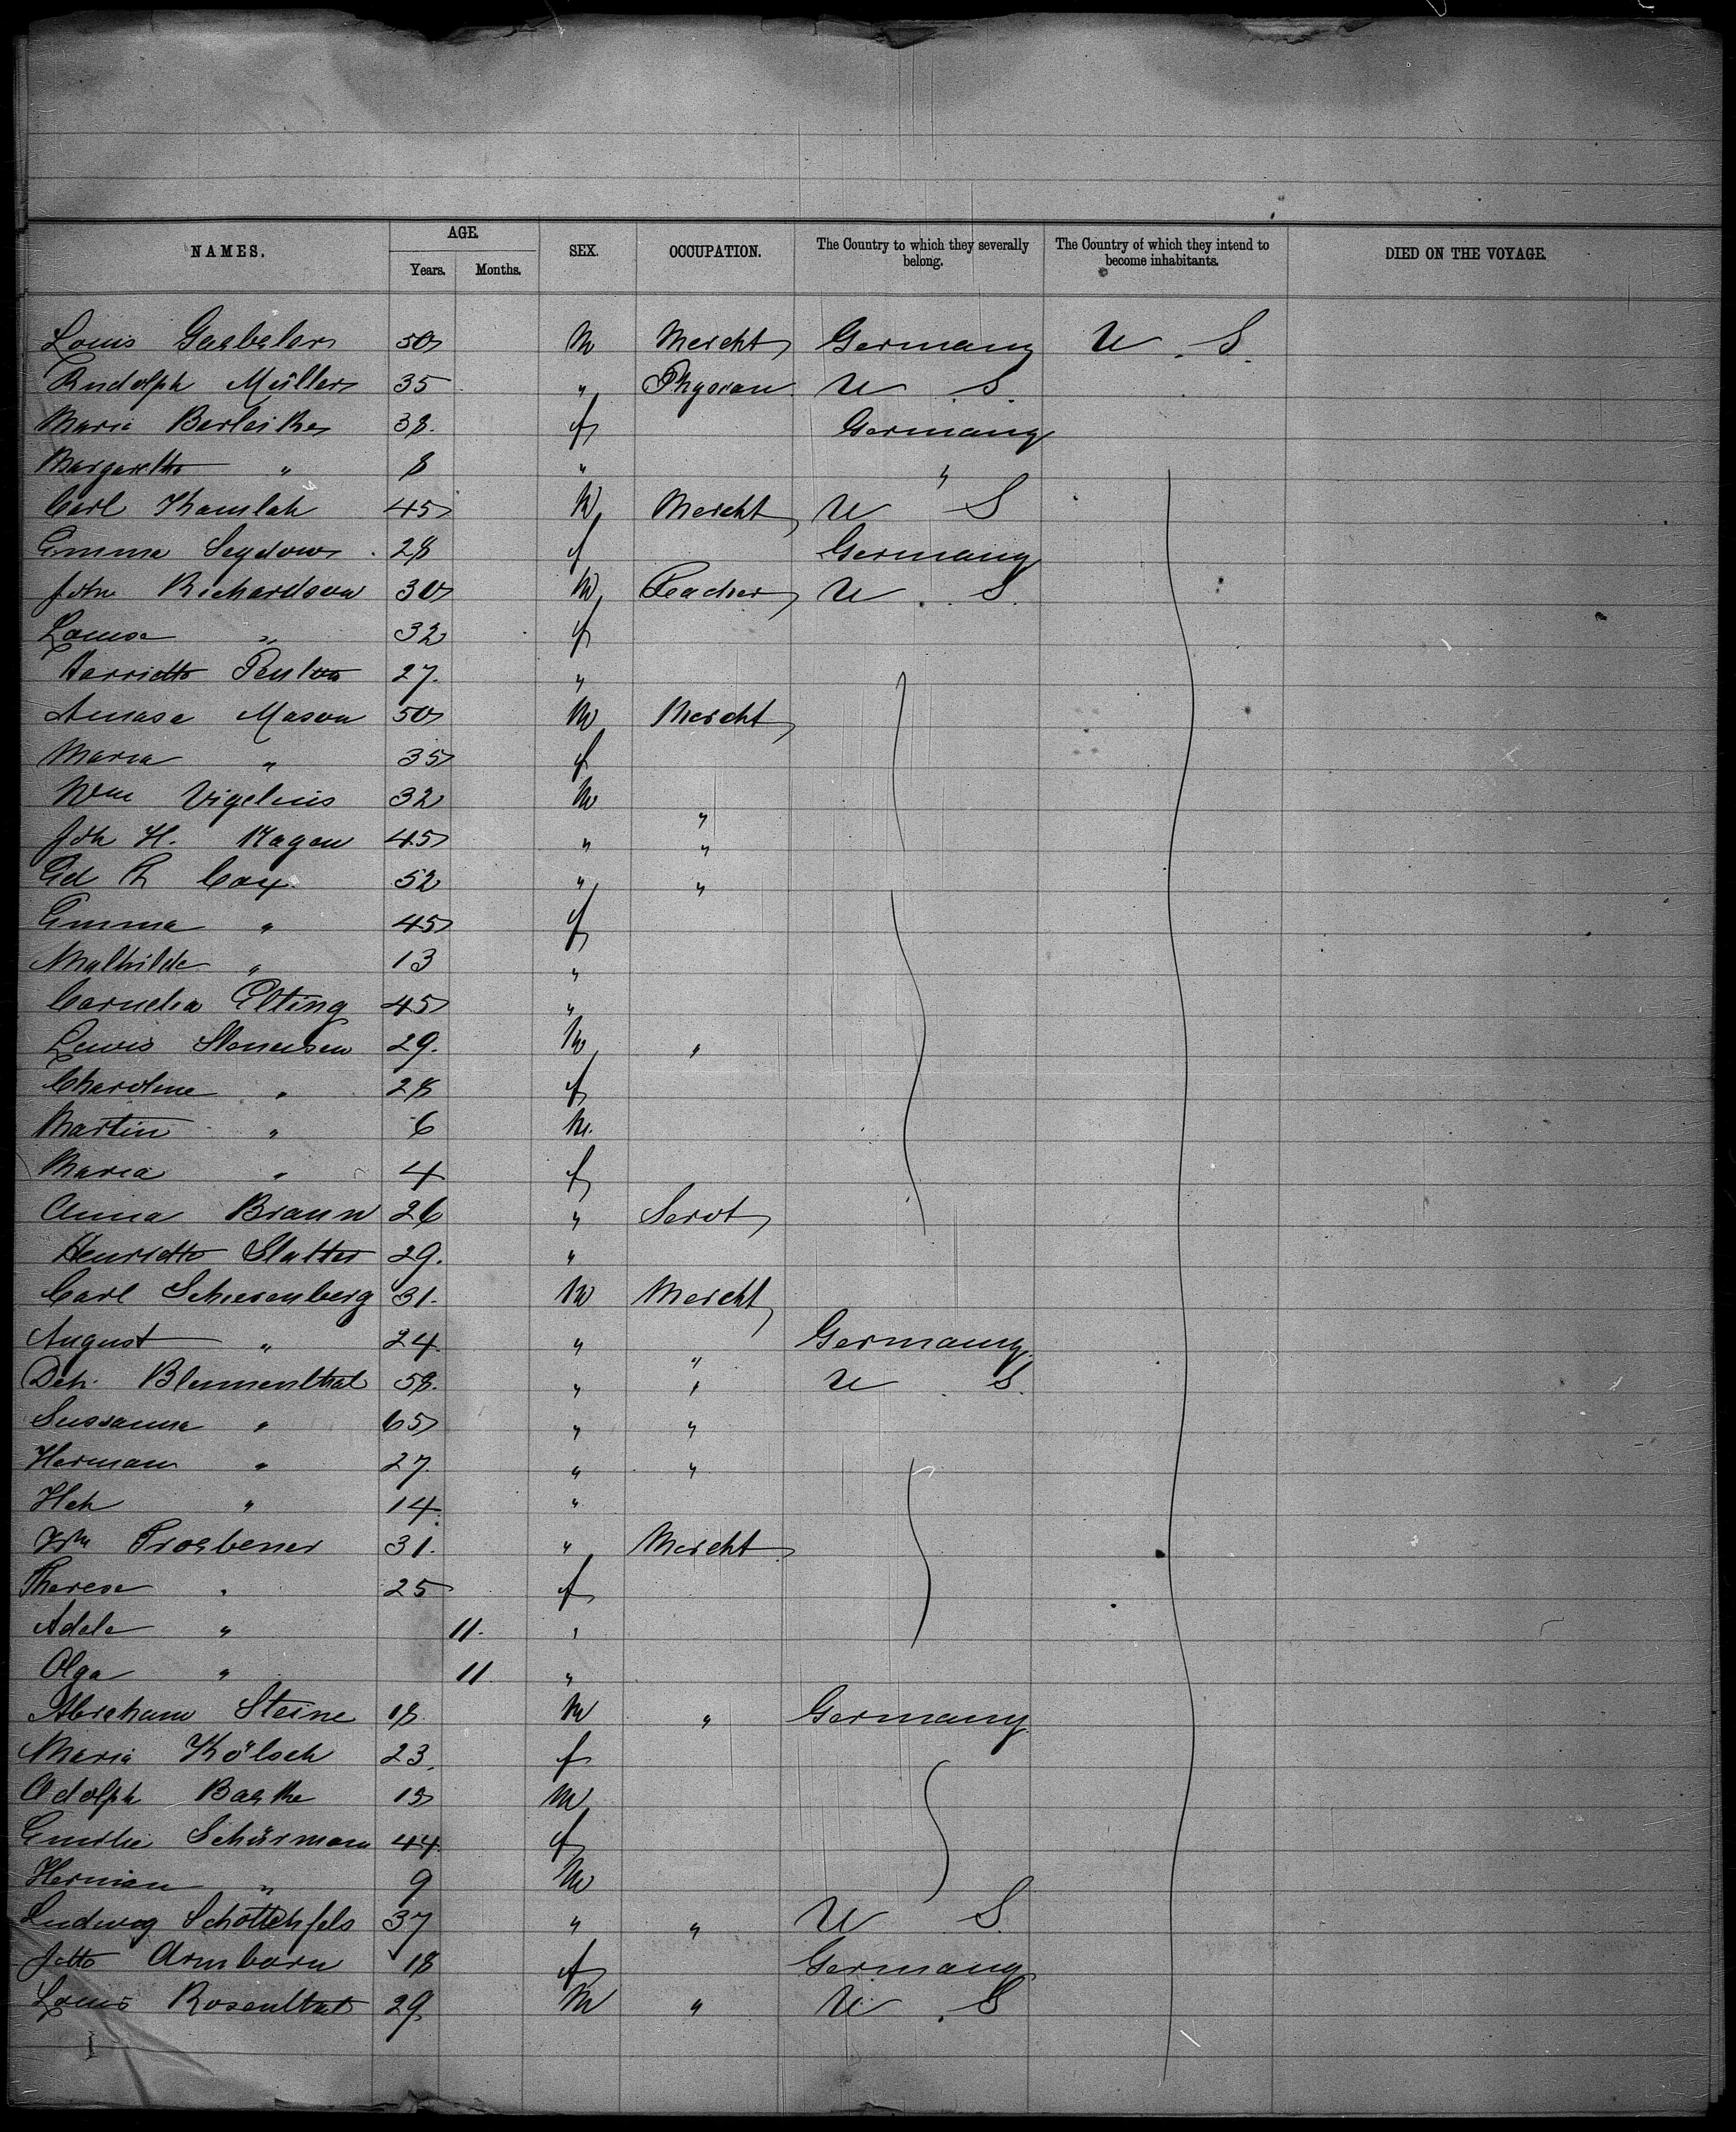 NAMES. AGE. SEX. OCCUPATION. The Country to which they severally belong. The Country of which they intend to become inhabitants. DIED ON THE VOYAGE.
Years. Months.
Louis Gaebeler 50 M Mercht Germany U. S.
Rudolph Müller 35 " Physian U. S.
Maria Berleike 38. f Germany
Margaretha " 8 " "
Carl Kamlah 45 M Mercht U S
Emma Seydow 28 f Germany
John Richardson 30 M Teacher U. S.
Louise " 32 f
Harriette 27. "
Amasa Mason 50 M Mercht
Maria " 35 f
Wm Vigelius 32 M "
Joh H. Hagen 45 " "
Ed Cox 52 " "
Emma " 45 f
Mathilde " 13 "
Cornelia Elting 45 "
Lewis 29. M "
Charoline " 28 f
Martin " 6 M.
Maria " 4 f
Anna Braun 26 " Servt
Henriette Slatter 29. "
Carl Schierenberg 31. M Mercht
August " 24 " " Germany.
Deh. Blumenthal 58. " " U. S.
Sussanna " 65 " "
Herman " 27. " "
Hch " 14. "
Wm 31. " Mercht
Therese " 25 f
Adele " 11. "
Olga " 11. "
Abraham Steine 18. M " Germany
Maria Kölsch 23. f
Adolph M
Emilie Schürmann 44 f
Herman " 9 M
Ludwig Schottenfels 37 " " U S.
Jette Armborn 18 f Germany
Louis Rosenthal 29. M " U. S